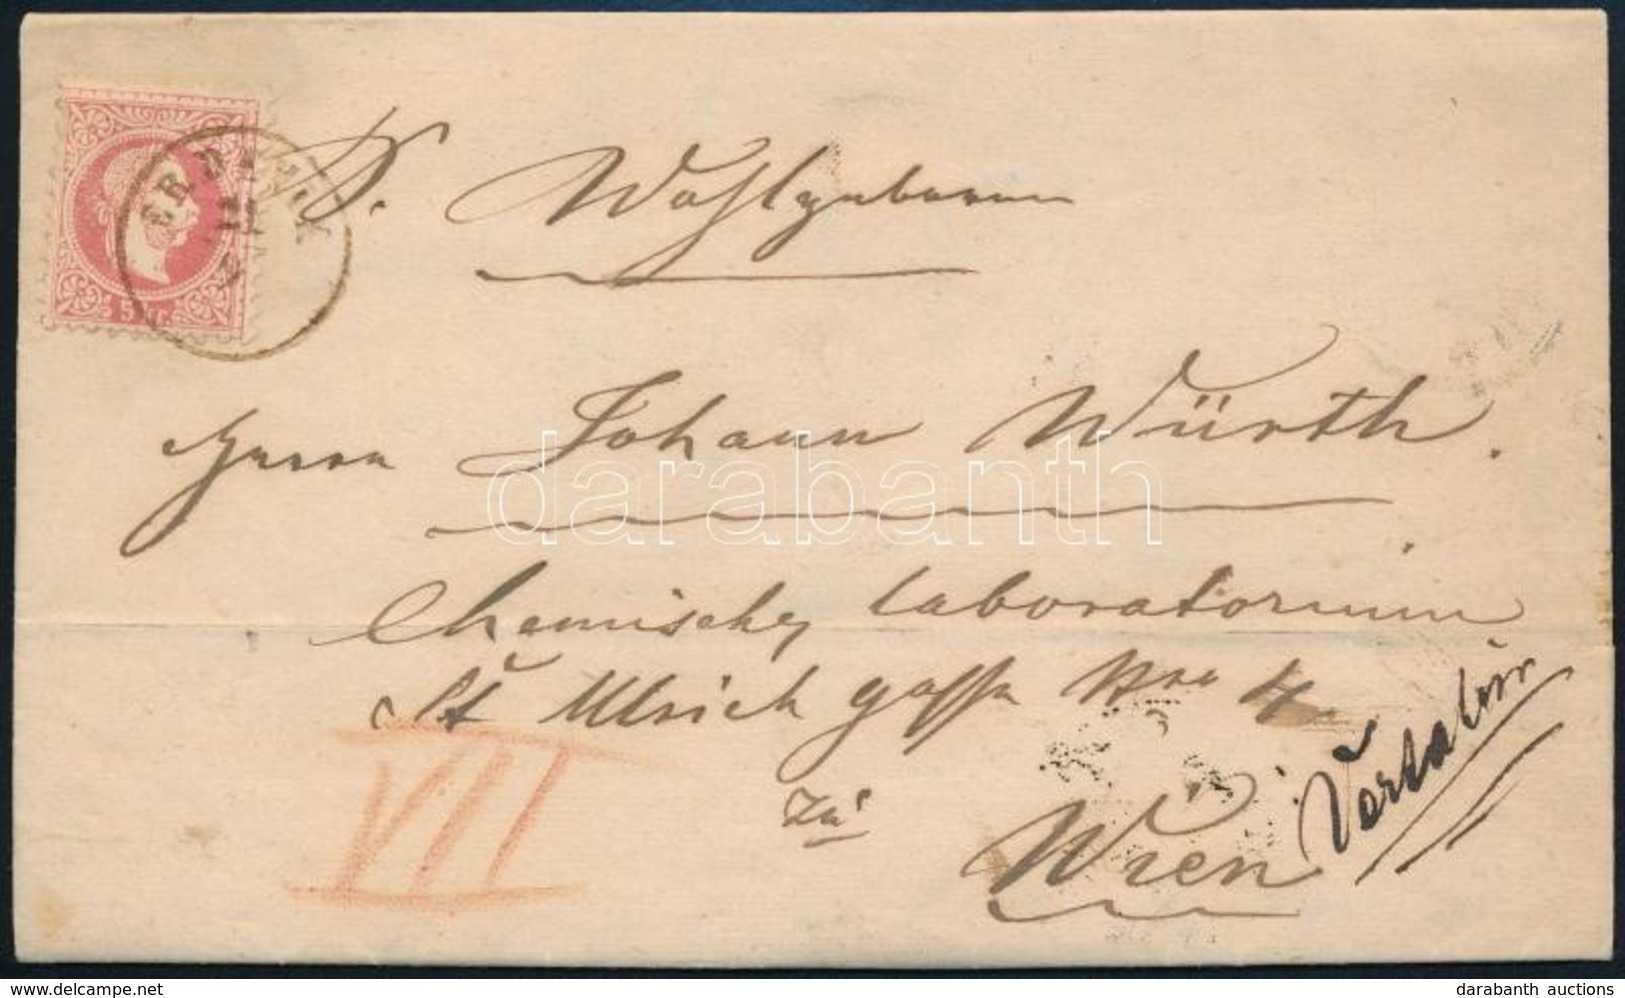 P. Wohlgeboren
Herrn Johann Würth.
Chemisches Laboratorium
St Ulrich gasse Nro 4
VII
zu
Wien
5 kr.
darabanth
www.delcampe.net
darabanth auctions